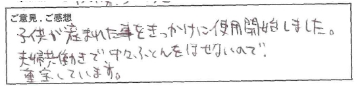 ご意見、ご感想
子供が産まれた事をきっかけに使用開始しました。
夫婦共働きで中々ふとんをほせないので、
重宝しています。